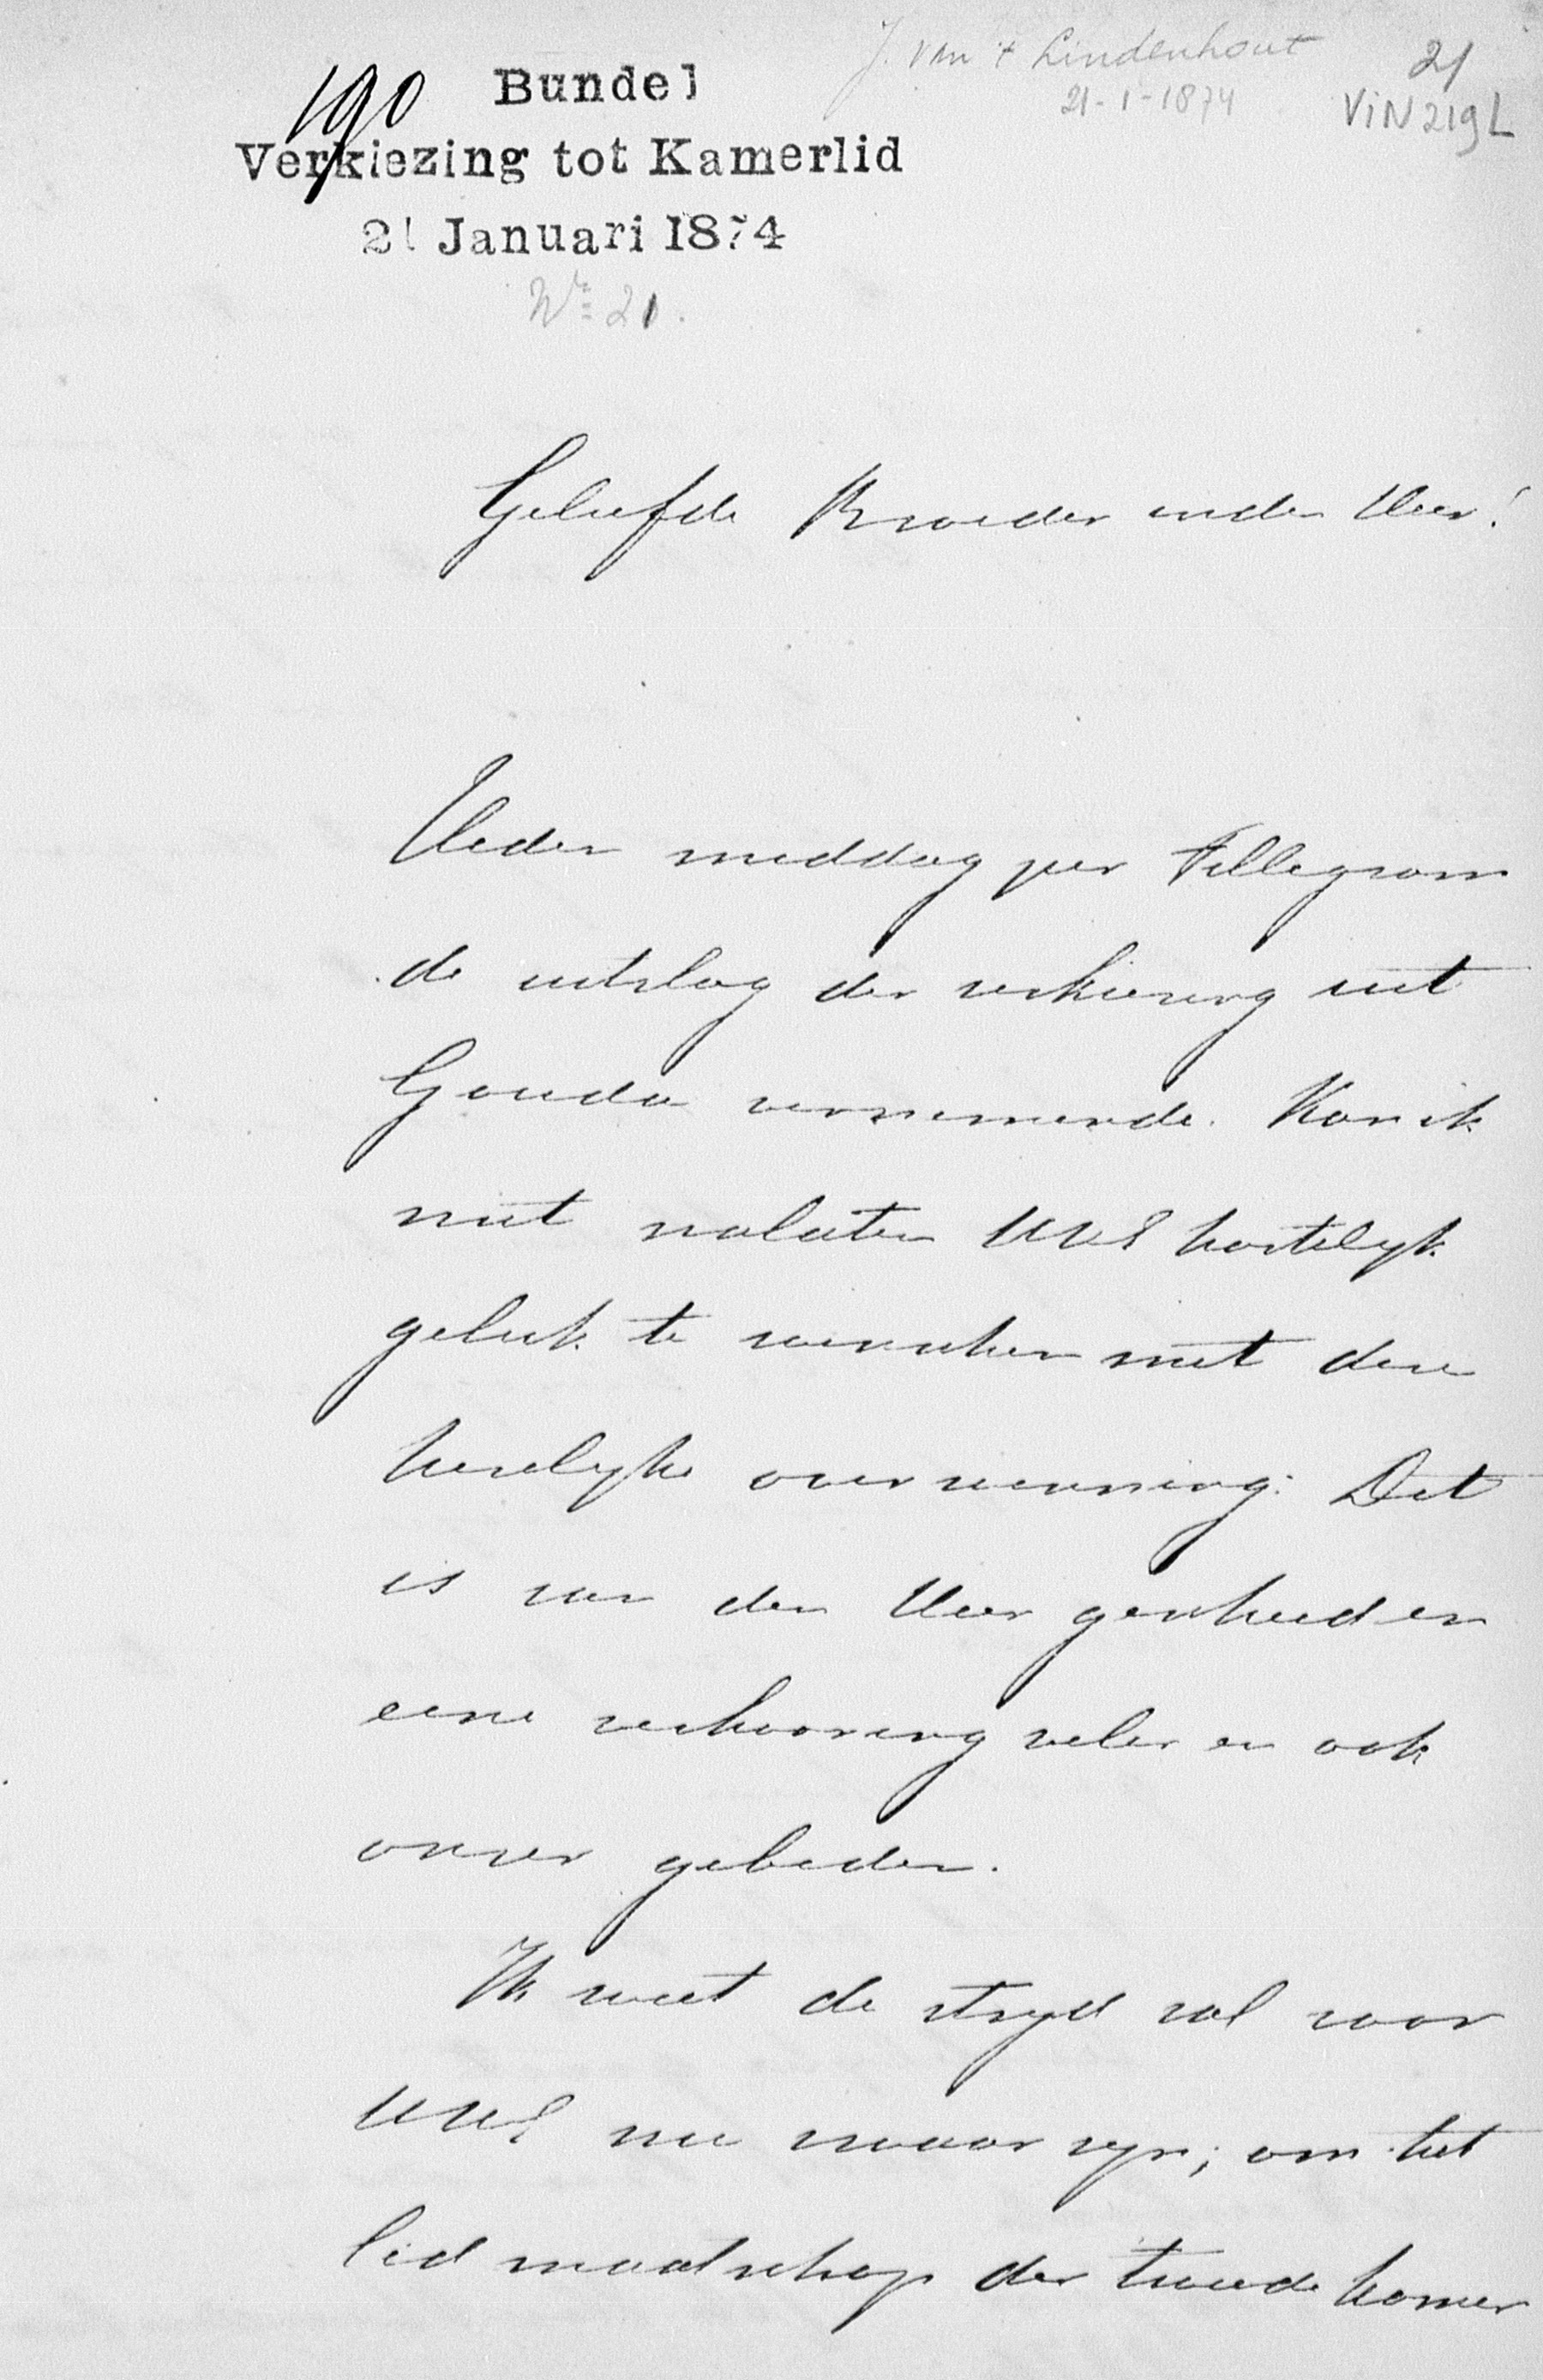 J. van 't Lindenhout
21-1-1874
21
VIN 219 L
190
Bundel
Verkiezing tot Kamerlid
21 Januari 1874
No 21.
Geliefde Broeder inden Heer!
Heden middag per Tellegram
de uitslag der verkiezing uit
Gouda vernemende. Kan ik
niet nalaten UWE hartelyk
geluk te wenschen met deze
heerlyke overwinning: Dit
is van den Heer geschied en
eene verhooring veler en ook
onzer gebeden.
Ik weet de stryd zal voor
UWE nu zwaar zyn; om het
lidmaatschap der tweede kamer